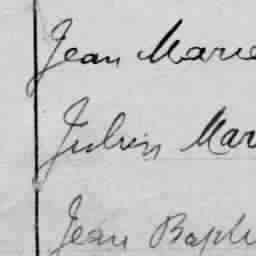 Jean Marie
Julien Mar
Jean Bapti